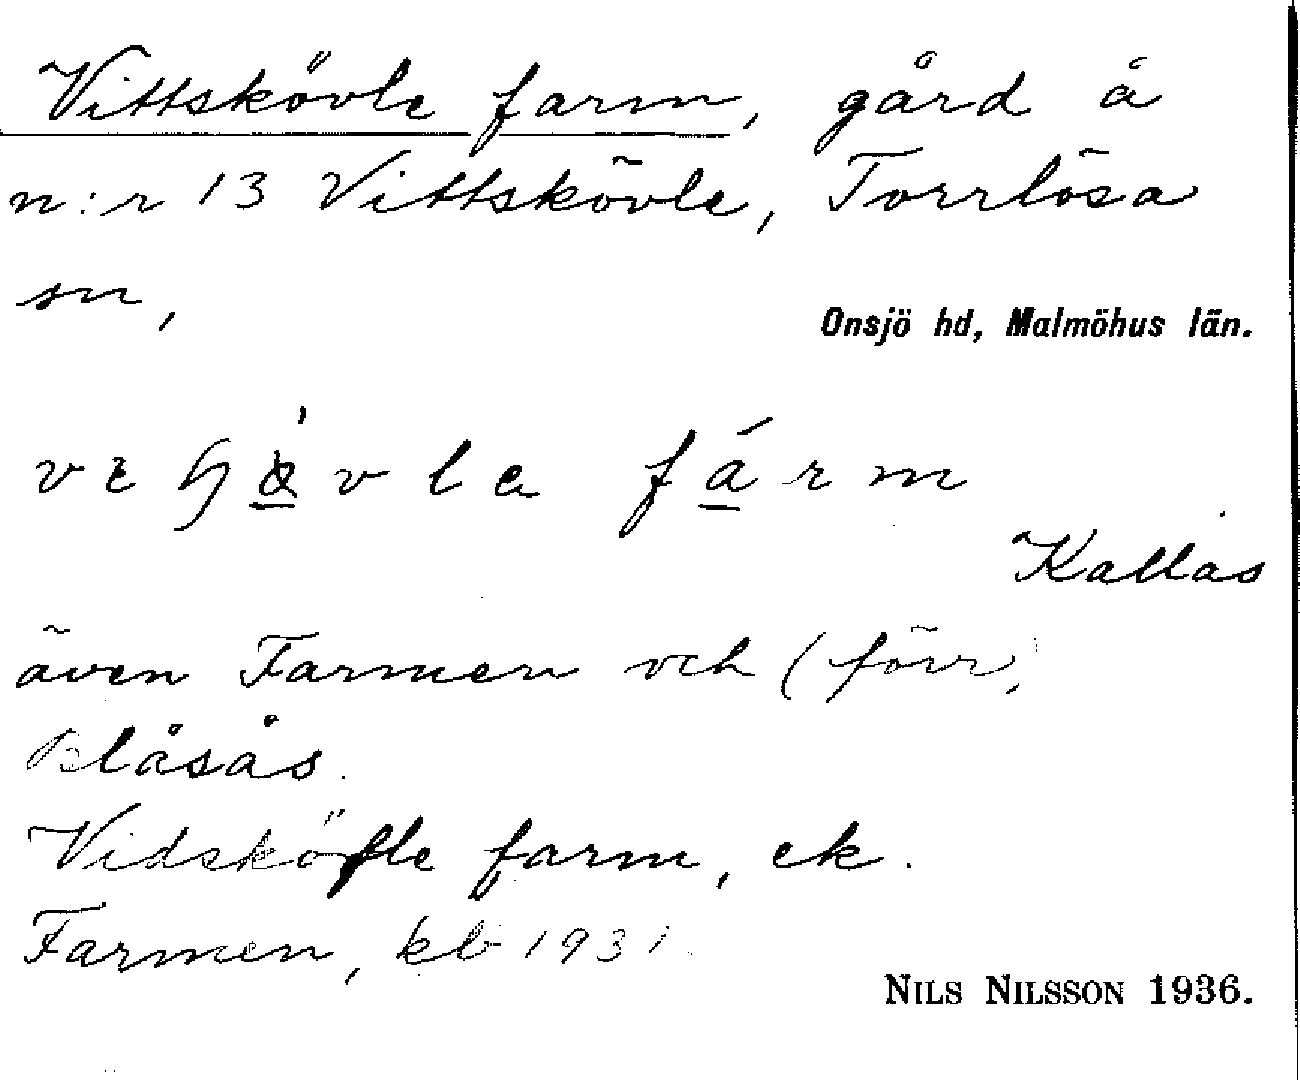 Vittskövle farm, gård å
n:r 13 Vittskövle, Torrlösa
sn,
Onsjö hd, Malmöhus län.
fárm
Kallas
även Farmen och (förr)
Blåsås.
Vidsköfle farm, ek.
Farmen, kb 1931.
NILS NILSSON 1936.